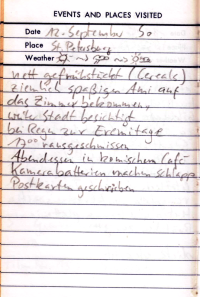 EVENTS AND PLACES VISITED
Date 12. September So
Place St. Petersburg
Weather
nett gefrühstückt (Cereals)
ziemlich spaßigen Ami auf
das Zimmer bekommen,
Stadt besichtigt
bei Regen zur Eremitage
17⁰⁰ rausgeschmissen
Abendessen in komischem Café
Kamerabatterien machen schlapp
Postkarten geschrieben